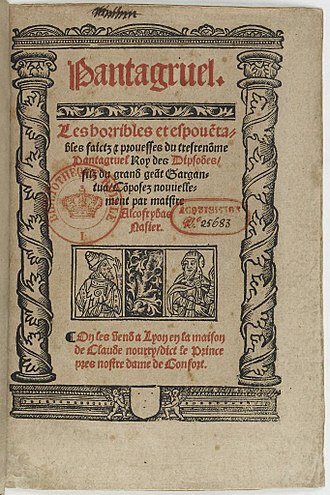 Pantagruel.
Les horribles et espouẽta-
bles faictz ⁊ prouesses du tresrenõme
Pantagruel Roy des Dipsodes/
filz du grand geãt Gargan-
tua/ Cõposez nouuelle-
ment par maistre
Alcofrybas
Nasier.
ACQUISITION
25683
On les vend a Lyon en la maison
de Claude nourry/ dict le Prince
pres nostre dame de Confort.